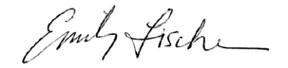 Emily Fischer